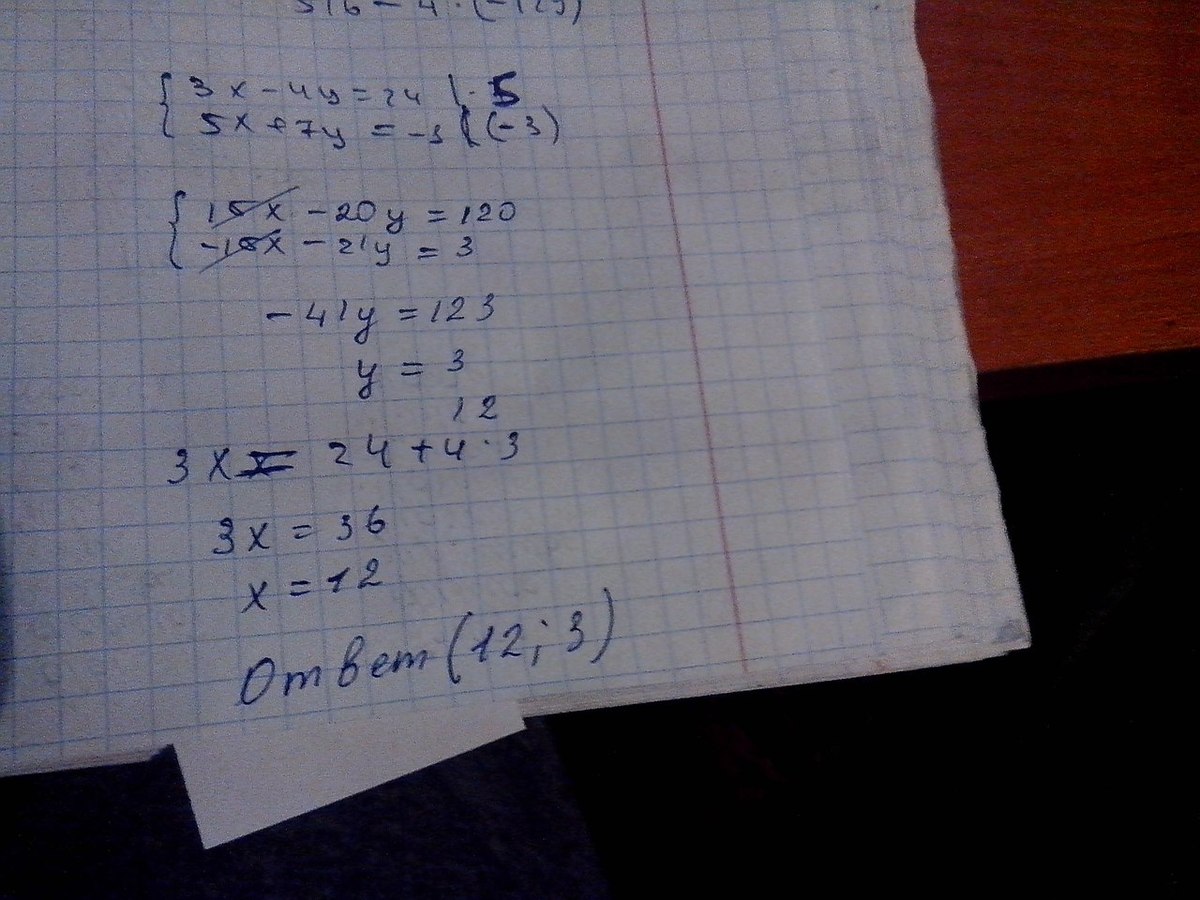 { 3x - 4y = 24 | · 5
5x + 7y = -1 | (-3)
{ 15x - 20y = 120
-15x - 21y = 3
- 41y = 123
y = 3
12
3x = 24 + 4 · 3
3x = 36
x = 12
Ответ (12; 3)